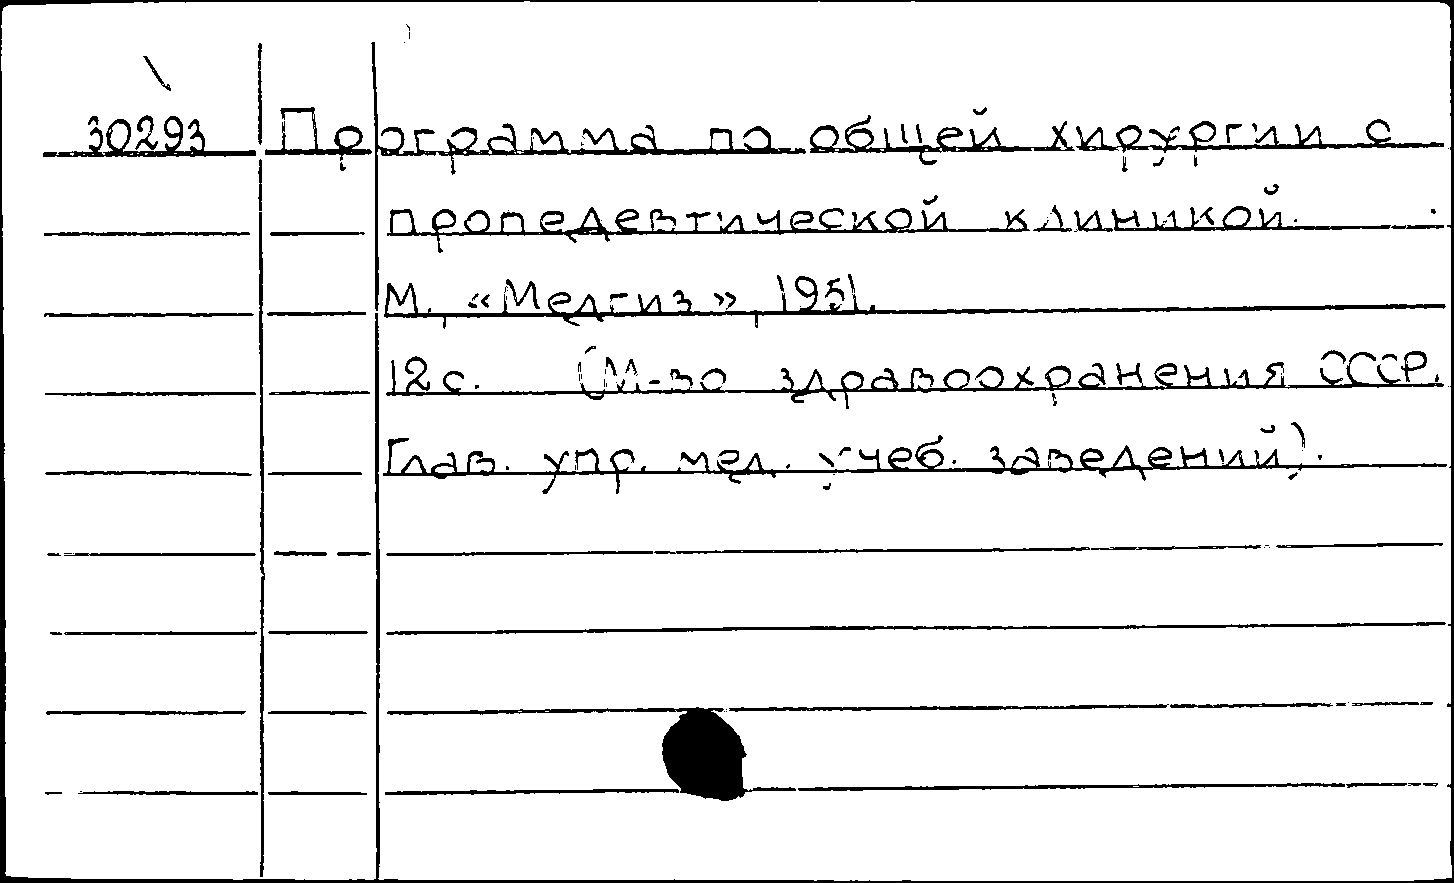 30293 Программа по общей хирургии с
пропедевтической клиникой.
М., «Медгиз», 1951.
12 с. (М-во здравоохранения СССР.
Глав. упр. мед. учеб. заведений).